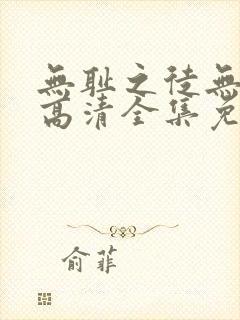 無耻之徒無
高清全集免
俞菲